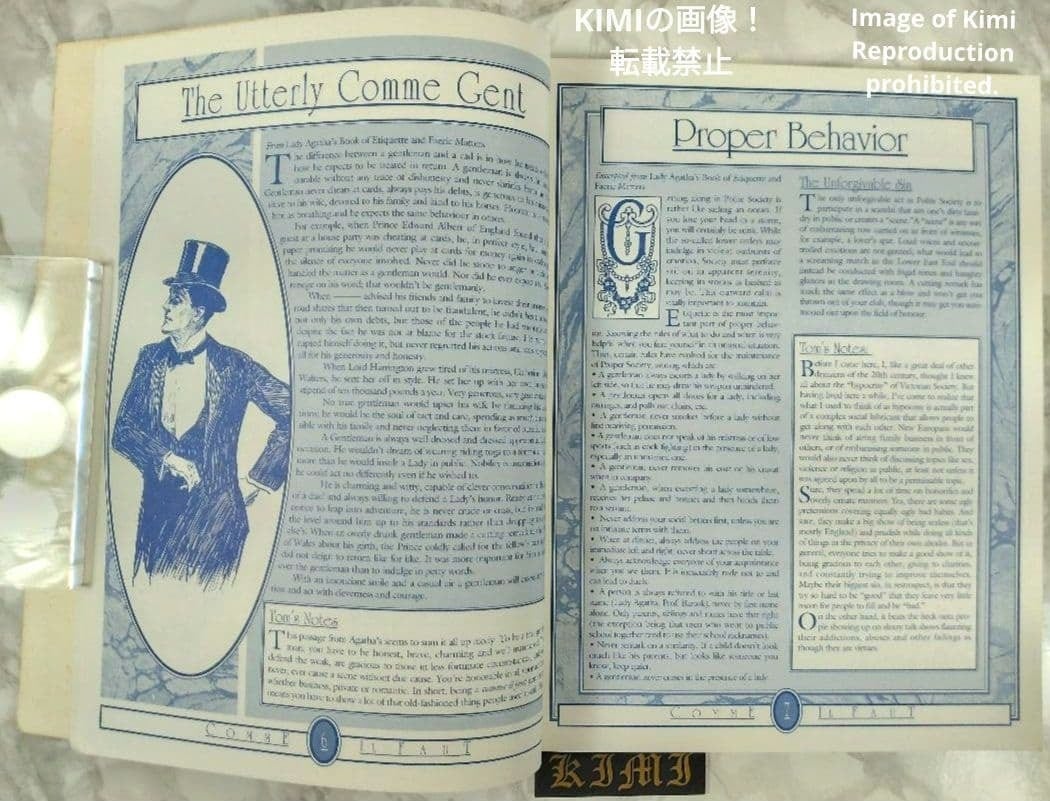 KIMIの画像！
転載禁止
Image of Kimi
Reproduction
prohibited.
The Utterly Comme Gent
From Lady Agatha's Book of Etiquette and Faerie Matters
The difference between a gentleman and a cad is in how he
how he expects to be treated in return. A gentleman is always
without any trace of dishonesty and never
Gentleman never cheats at cards, always pays his debts, is generous
to his wife, devoted to his family and kind to his horses.
as breathing and he expects the same behaviour in others.
For example, when Prince Edward Albert of England found that
guest at a house party was cheating at cards, he,
promising he would never play at cards for money again
the silence of everyone involved. Never did he stoop to
handled the matter as a gentleman would. Nor did he ever
revenge on his word; that wouldn't be gentlemanly.
When ——— advised his friends and family to invest their
road shares that then turned out to be fraudulent, he
not only his own debts, but those of the people he had
despite the fact he was not at blame for the stock failure.
himself doing it, but never regretted his actions
all for his generosity and honesty.
When Lord Harrington grew tired of his mistress,
Walters, he sent her off in style. He set her up with
stipend of ten thousand pounds a year. Very generous, very
No true gentleman would upset his wife by
he would be the soul of tact and care, spending as much
with his family and never neglecting them in favor of
A Gentleman is always well dressed and dressed
occasion. He wouldn't dream of wearing riding togs to a
more than he would insult a Lady in public.
he could act no differently even if he wished to.
He is charming and witty, capable of clever conversation
of a duel and always willing to defend a Lady's honor.
notice to leap into adventure, he is never crude or crass, but
the level around him up to his standards rather than
else's. When an overly drunk gentleman made a cutting
of Wales about his girth, the Prince coldly called for the fellow's
did not deign to return like for like. It was more important for him
ever the gentleman than to indulge in petty words.
With an insouciant smile and a casual air a gentleman will
and act with cleverness and courage.
Tom's Notes
This passage from Agatha's seems to sum it all up nicely. To be a true
man, you have to be honest, brave, charming and well
defend the weak, are gracious to those in less fortunate circumstances,
never, ever cause a scene without due cause. You're honorable in all
whether business, private or romantic. In short, being a
means you have to show a lot of that old-fashioned thing people used to call
COMME 6 IL FAUT
Proper Behavior
Excerpted from Lady Agatha's Book of Etiquette and
Faerie Matters
Getting along in Polite Society is
rather like sailing an ocean. If
you lose your head in a storm,
you will certainly be sunk. While
the so-called lower orders may
indulge in violent outbursts of
emotion, Society must perforce
sit on its apparent serenity,
keeping its storms as hushed as
may be. This outward calm is
vitally important to maintain.
Etiquette is the most impor-
tant part of proper behav-
ior. Knowing the rules of what to do and when is very
helpful when you find yourself in an unusual situation.
Thus, certain rules have evolved for the maintenance
of Proper Society, among which are:
• A gentleman always escorts a lady by walking on her
left side, so that he may draw his weapon unhindered.
• A gentleman opens all doors for a lady, including
carriages, and pulls out chairs, etc.
• A gentleman never smokes before a lady without
first receiving permission.
• A gentleman does not speak of his mistress or of low
sports (such as cock fighting) in the presence of a lady,
especially an innocent one.
• A gentleman never removes his coat or his cravat
when in company.
• A gentleman, when escorting a lady somewhere,
receives her pelisse and bonnet and then hands them
to a servant.
• Never address your social betters first, unless you are
on intimate terms with them.
• When at dinner, always address the people on your
immediate left and right; never shout across the table.
• Always acknowledge everyone of your acquaintance
when you see them. It is insufferably rude not to and
can lead to duels.
• A person is always referred to with his title or last
name (Lady Agatha, Prof. Harald), never by first name
alone. Only parents, siblings and mates have that right
(the exception being that men who went to public
school together tend to use their school nicknames).
• Never remark on a similarity. If a child doesn't look
much like his parents, but looks like someone you
know, keep quiet.
• A gentleman never curses in the presence of a lady.
The Unforgivable Sin
The only unforgivable act in Polite Society is to
participate in a scandal that airs one's dirty laun-
dry in public or creates a "scene." A "scene" is any sort
of embarrassing row carried on in front of witnesses,
for example, a lover's spat. Loud voices and uncon-
trolled emotion are not genteel; what would lead to
a screaming match in the Lower East End should
instead be conducted with frigid tones and haughty
glances in the drawing room. A cutting remark has
much the same effect as a blow and won't get you
thrown out of your club, though it may get you sum-
moned out upon the field of honour.
Tom's Notes
Before I came here, I, like a great deal of other
denizens of the 20th century, thought I knew
all about the "hypocrisy" of Victorian Society. But
having lived here a while, I've come to realize that
what I used to think of as hypocrisy is actually part
of a complex social lubricant that allows people to
get along with each other. New Europans would
never think of airing family business in front of
others, or of embarrassing someone in public. They
would also never think of discussing topics like sex,
violence or religion in public, at least not unless it
was agreed upon by all to be a permissible topic.
Sure, they spend a lot of time on honorifics and
overly ornate manners. Yes, there are some ugly
pretensions covering equally ugly bad habits. And
sure, they make a big show of being sexless (that's
mostly England) and prudish while doing all kinds
of things in the privacy of their own abodes. But in
general, everyone tries to make a good show of it,
being gracious to each other, giving to charities
and constantly trying to improve themselves.
Maybe their biggest sin, in retrospect, is that they
try so hard to be "good" that they leave very little
room for people to fail and be "bad."
On the other hand, it beats the heck outta peo-
ple showing up on sleazy talk shows flaunting
their addictions, abuses and other failings as
though they are virtues.
COMME 7 IL FAUT
KIMI